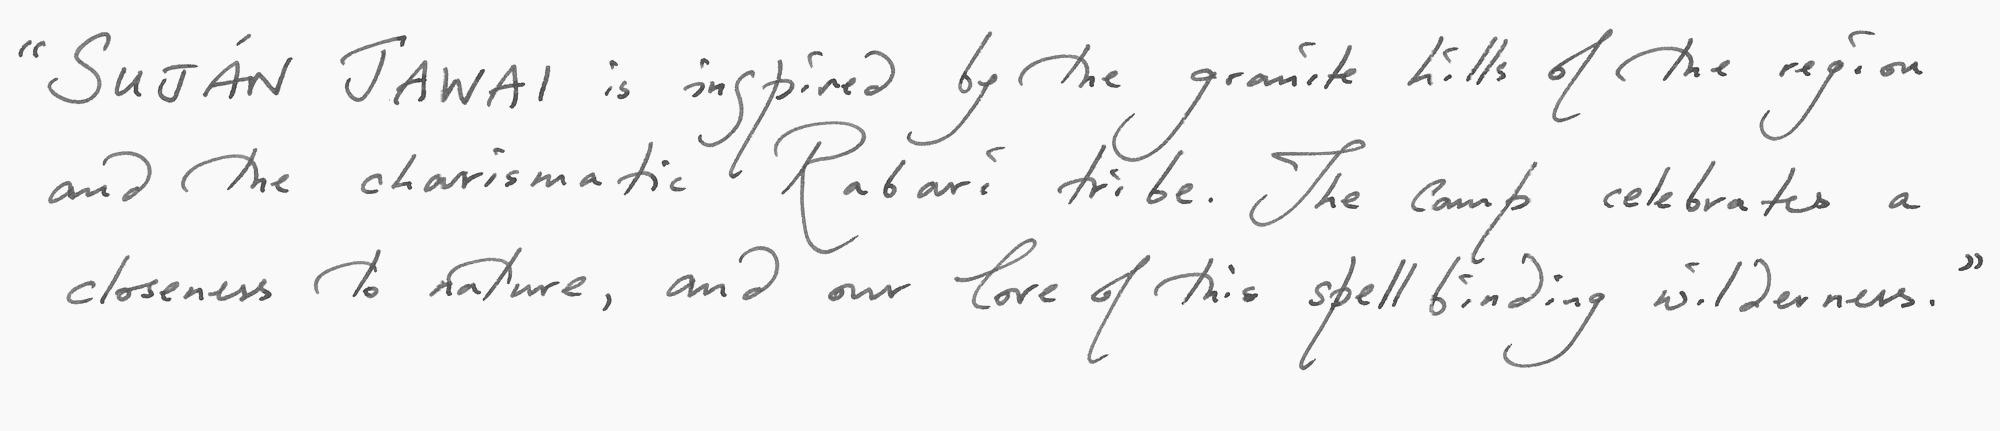 “SUJÁN JAWAI is inspired by the granite hills of the region
and the charismatic Rabari tribe. The camp celebrates a
closeness to nature, and our love of this spellbinding wilderness.”